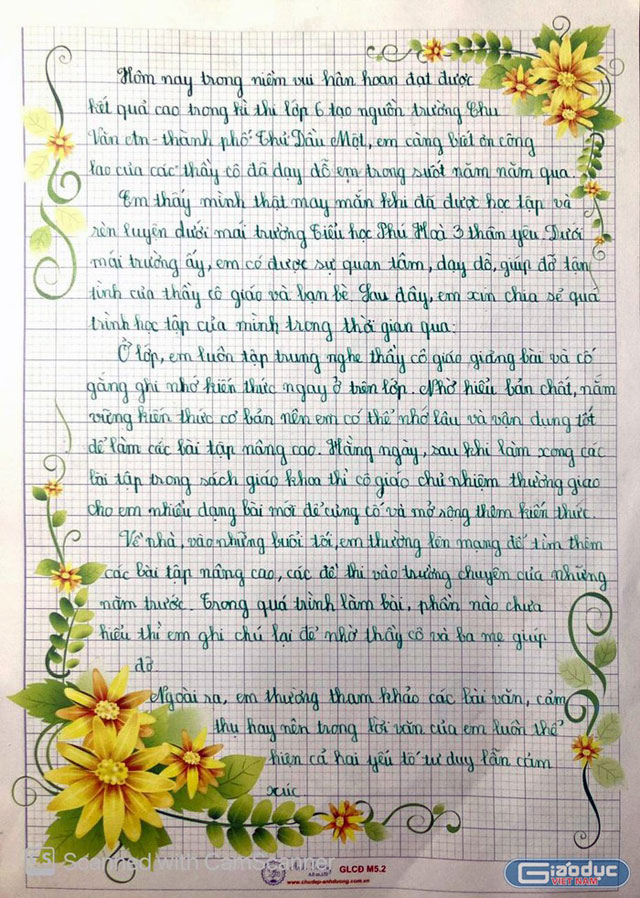 Hôm nay trong niềm vui hân hoan đạt được
kết quả cao trong kì thi lớp 6 tạo nguồn trường Chu
Văn An - thành phố Thủ Dầu Một, em càng biết ơn công
lao của các thầy cô đã dạy dỗ em trong suốt năm năm qua.
Em thấy mình thật may mắn khi đã được học tập và
rèn luyện dưới mái trường Tiểu học Phú Hoà 3 thân yêu. Dưới
mái trường ấy, em có được sự quan tâm, dạy dỗ, giúp đỡ tận
tình của thầy cô giáo và bạn bè. Sau đây, em xin chia sẻ quá
trình học tập của mình trong thời gian qua:
Ở lớp, em luôn tập trung nghe thầy cô giáo giảng bài và cố
gắng ghi nhớ kiến thức ngay ở trên lớp. Nhờ hiểu bản chất, nắm
vững kiến thức cơ bản nên em có thể nhớ lâu và vận dụng tốt
để làm các bài tập nâng cao. Hằng ngày, sau khi làm xong các
bài tập trong sách giáo khoa thì cô giáo chủ nhiệm thường giao
cho em nhiều dạng bài mới để củng cố và mở rộng thêm kiến thức.
Về nhà, vào những buổi tối, em thường lên mạng để tìm thêm
các bài tập nâng cao, các đề thi vào trường chuyên của những
năm trước. Trong quá trình làm bài, phần nào chưa
hiểu thì em ghi chú lại để nhờ thầy cô và ba mẹ giúp
đỡ.
Ngoài ra, em thường tham khảo các bài văn, cảm
thụ hay nên trong lời văn của em luôn thể
hiện cả hai yếu tố tư duy lẫn cảm
xúc
CS Scanned with CamScanner
GLCD M5.2
www.chudep-anhduong.com.vn
Giáo dục
VIỆT NAM